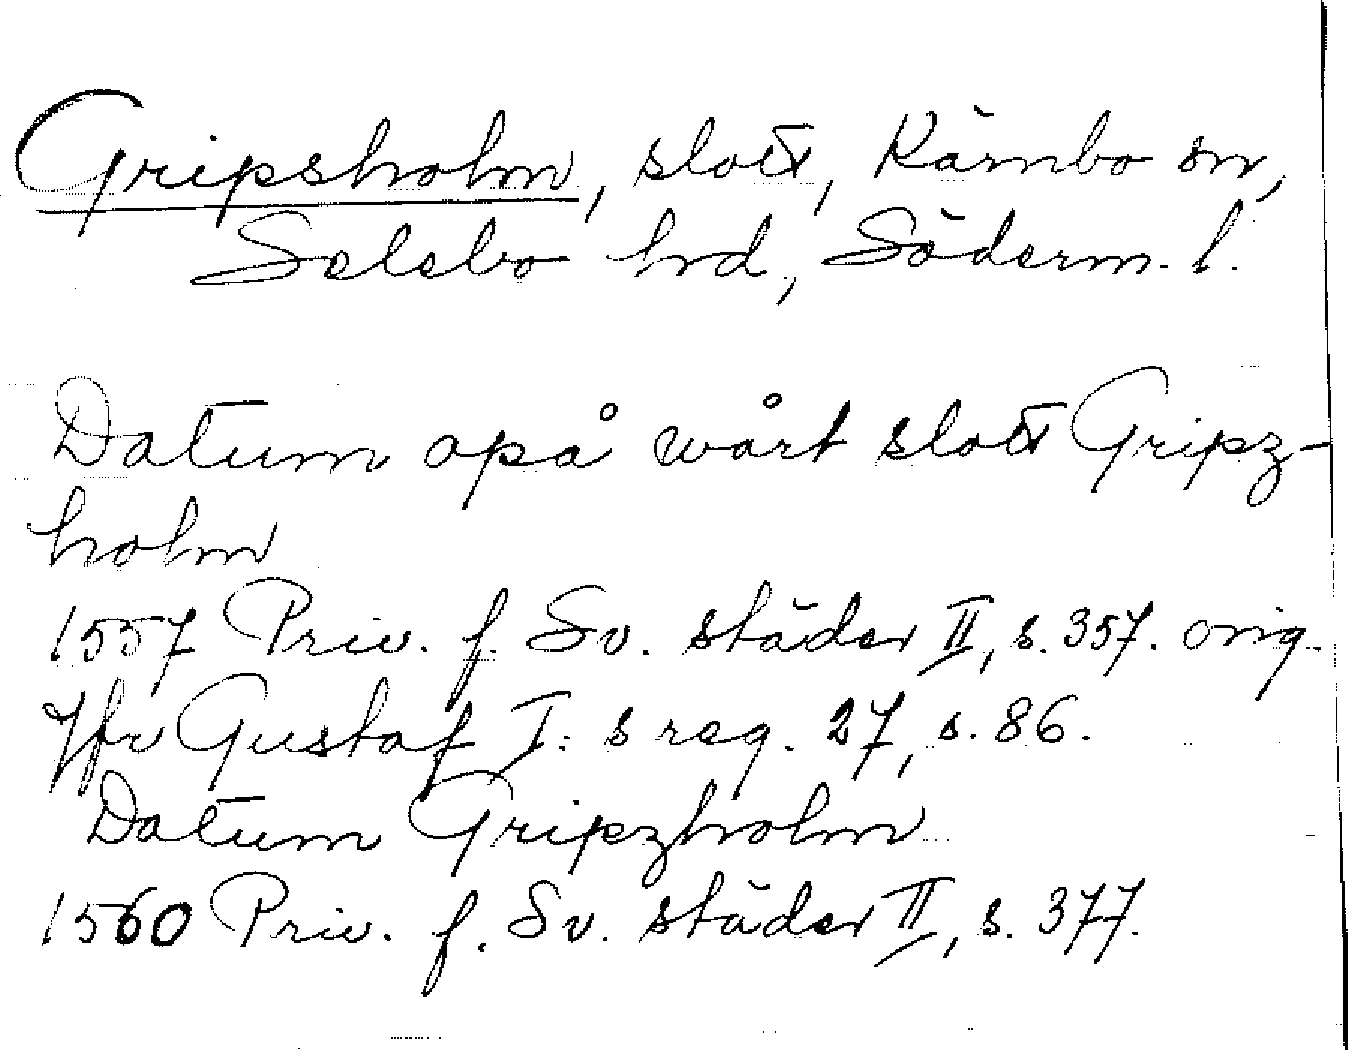 Gripsholm, slott, Kärnbo sn,
Selebo hd, Söderm. l.
Datum opå wårt slott Gripz-
holm
1557 Priv. f. Sv. städer II, s. 357. orig.
Jfr Gustaf I: s reg. 27, s. 86.
Datum Gripzholm
1560 Priv. f. Sv. städer II, s. 377.